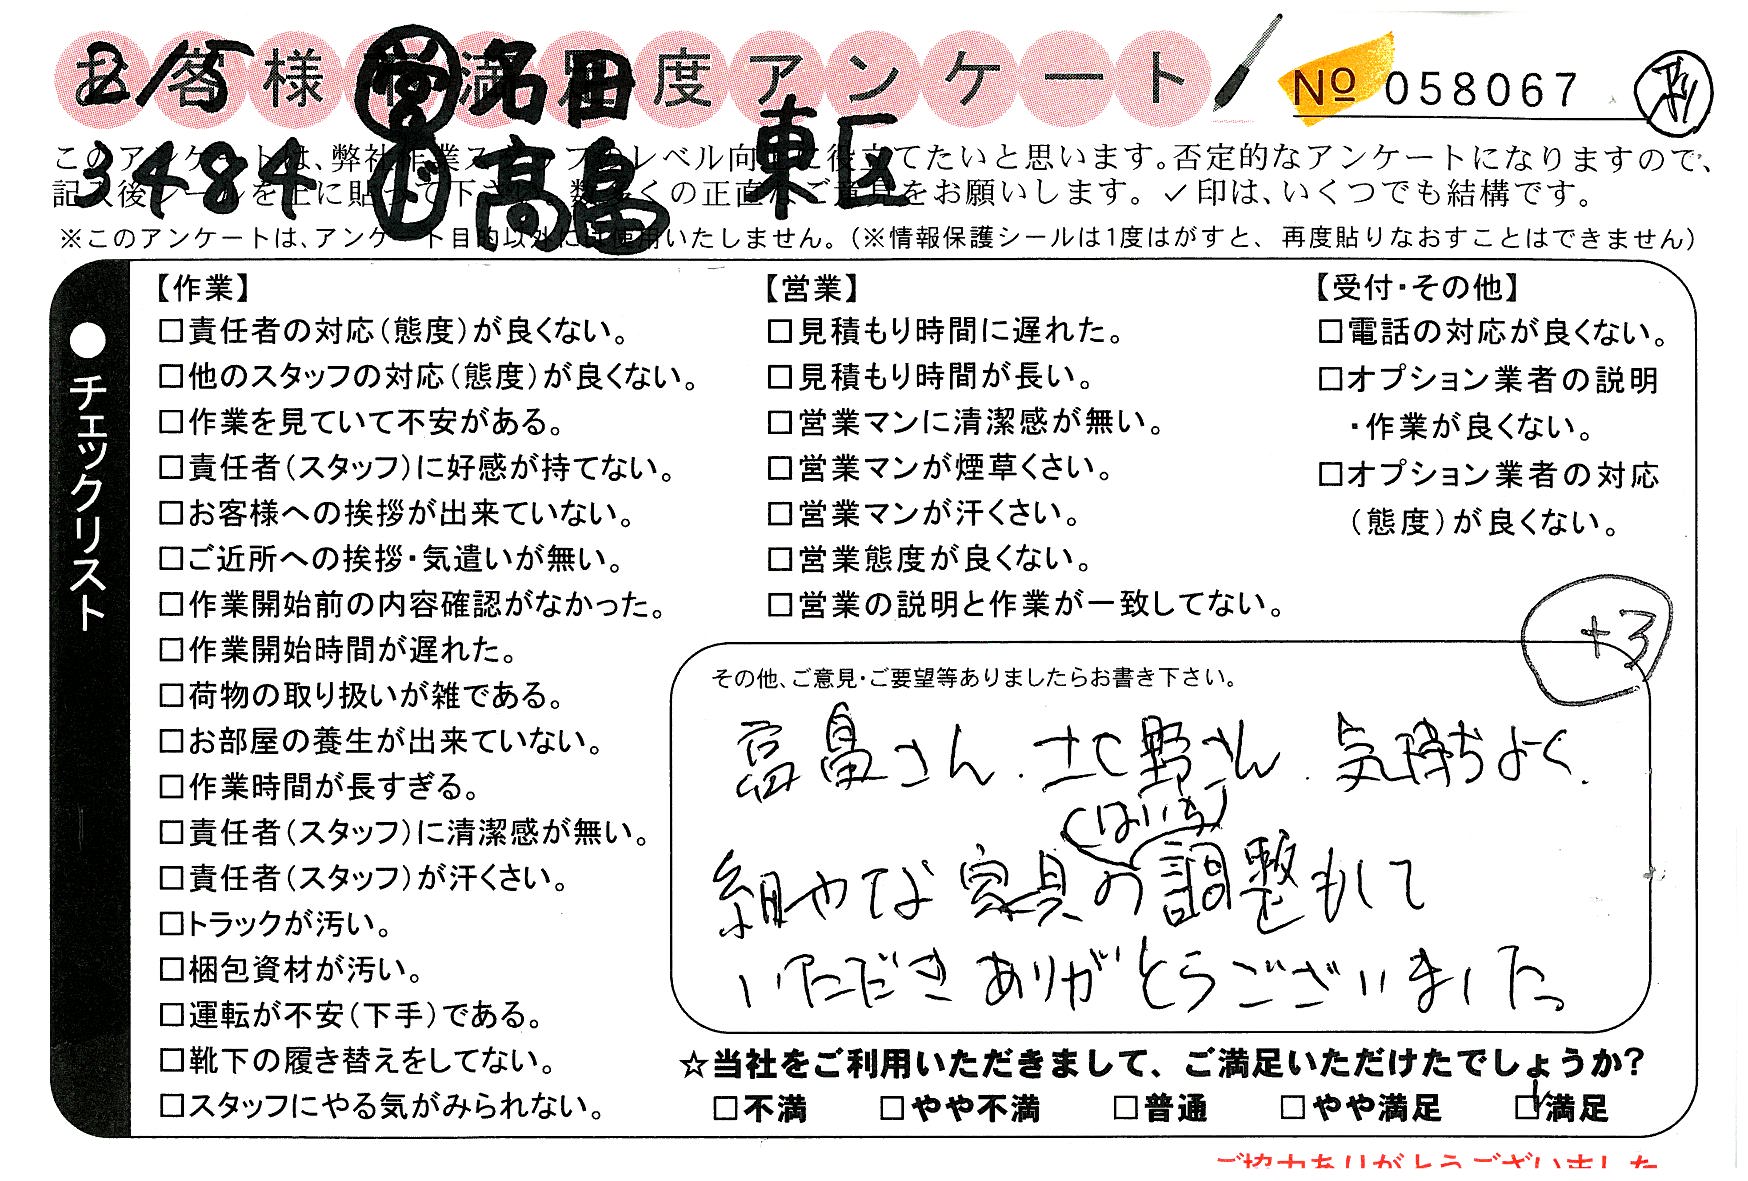 お客様満足度アンケート
No 058067
2/5 営 名田 東区
3484 ド 高畠
このアンケートは、弊社作業スタッフのレベル向上に役立てたいと思います。否定的なアンケートになりますので、
記入後シールを上に貼って下さい。数多くの正直なご意見をお願いします。✓印は、いくつでも結構です。
※このアンケートは、アンケート目的以外には使用いたしません。（※情報保護シールは1度はがすと、再度貼りなおすことはできません）
●チェックリスト
【作業】
□責任者の対応（態度）が良くない。
□他のスタッフの対応（態度）が良くない。
□作業を見ていて不安がある。
□責任者（スタッフ）に好感が持てない。
□お客様への挨拶が出来ていない。
□ご近所への挨拶・気遣いが無い。
□作業開始前の内容確認がなかった。
□作業開始時間が遅れた。
□荷物の取り扱いが雑である。
□お部屋の養生が出来ていない。
□作業時間が長すぎる。
□責任者（スタッフ）に清潔感が無い。
□責任者（スタッフ）が汗くさい。
□トラックが汚い。
□梱包資材が汚い。
□運転が不安（下手）である。
□靴下の履き替えをしてない。
□スタッフにやる気がみられない。
【営業】
□見積もり時間に遅れた。
□見積もり時間が長い。
□営業マンに清潔感が無い。
□営業マンが煙草くさい。
□営業マンが汗くさい。
□営業態度が良くない。
□営業の説明と作業が一致してない。
【受付・その他】
□電話の対応が良くない。
□オプション業者の説明
・作業が良くない。
□オプション業者の対応
（態度）が良くない。
+3
その他、ご意見・ご要望等ありましたらお書き下さい。
高畠さん、北野さん、気持ちよく、
細やかな家具の（はいち）調整もして
いただきありがとうございました。
☆当社をご利用いただきまして、ご満足いただけたでしょうか？
□不満 □やや不満 □普通 □やや満足 ☑満足
ご協力ありがとうございました